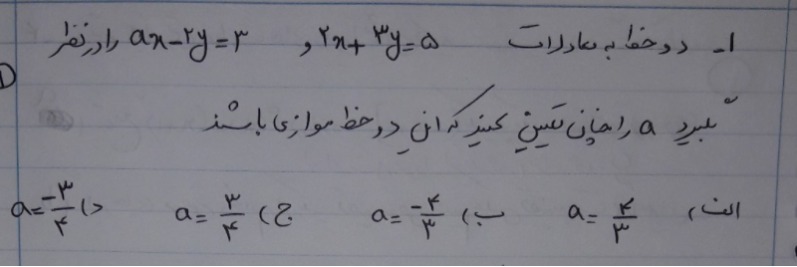 ۱- دو خط به معادلات ۲x+۳y=۵ و ax-۲y=۳ را در نظر
بگیرید a را چنان تعیین کنید که این دو خط موازی باشند
الف) a=۴/۳ ب) a=-۴/۳ ج) a=۳/۴ د) a=-۳/۴